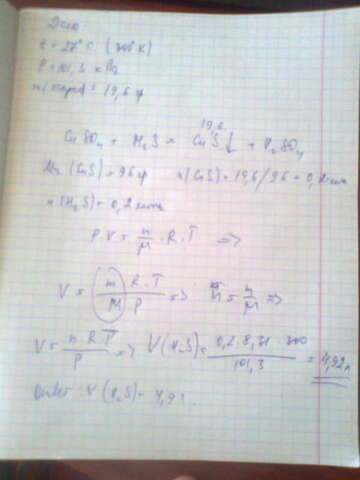 Дано
t = 27°C (300°K)
P = 101,3 кПа
m(осадка) = 19,6 гр
19,6
CuSO₄ + H₂S = CuS↓ + H₂SO₄
Mr (CuS) = 96 гр n(CuS) = 19,6/96 = 0,2 моль
n(H₂S) = 0,2 моль
PV = m/M · R · T =>
V = (m/M) R·T/P => n = m/M =>
V = n R T/P => V(H₂S) = 0,2 · 8,31 · 300/101,3 = 4,92 л
Ответ: V(H₂S) = 4,9 л.